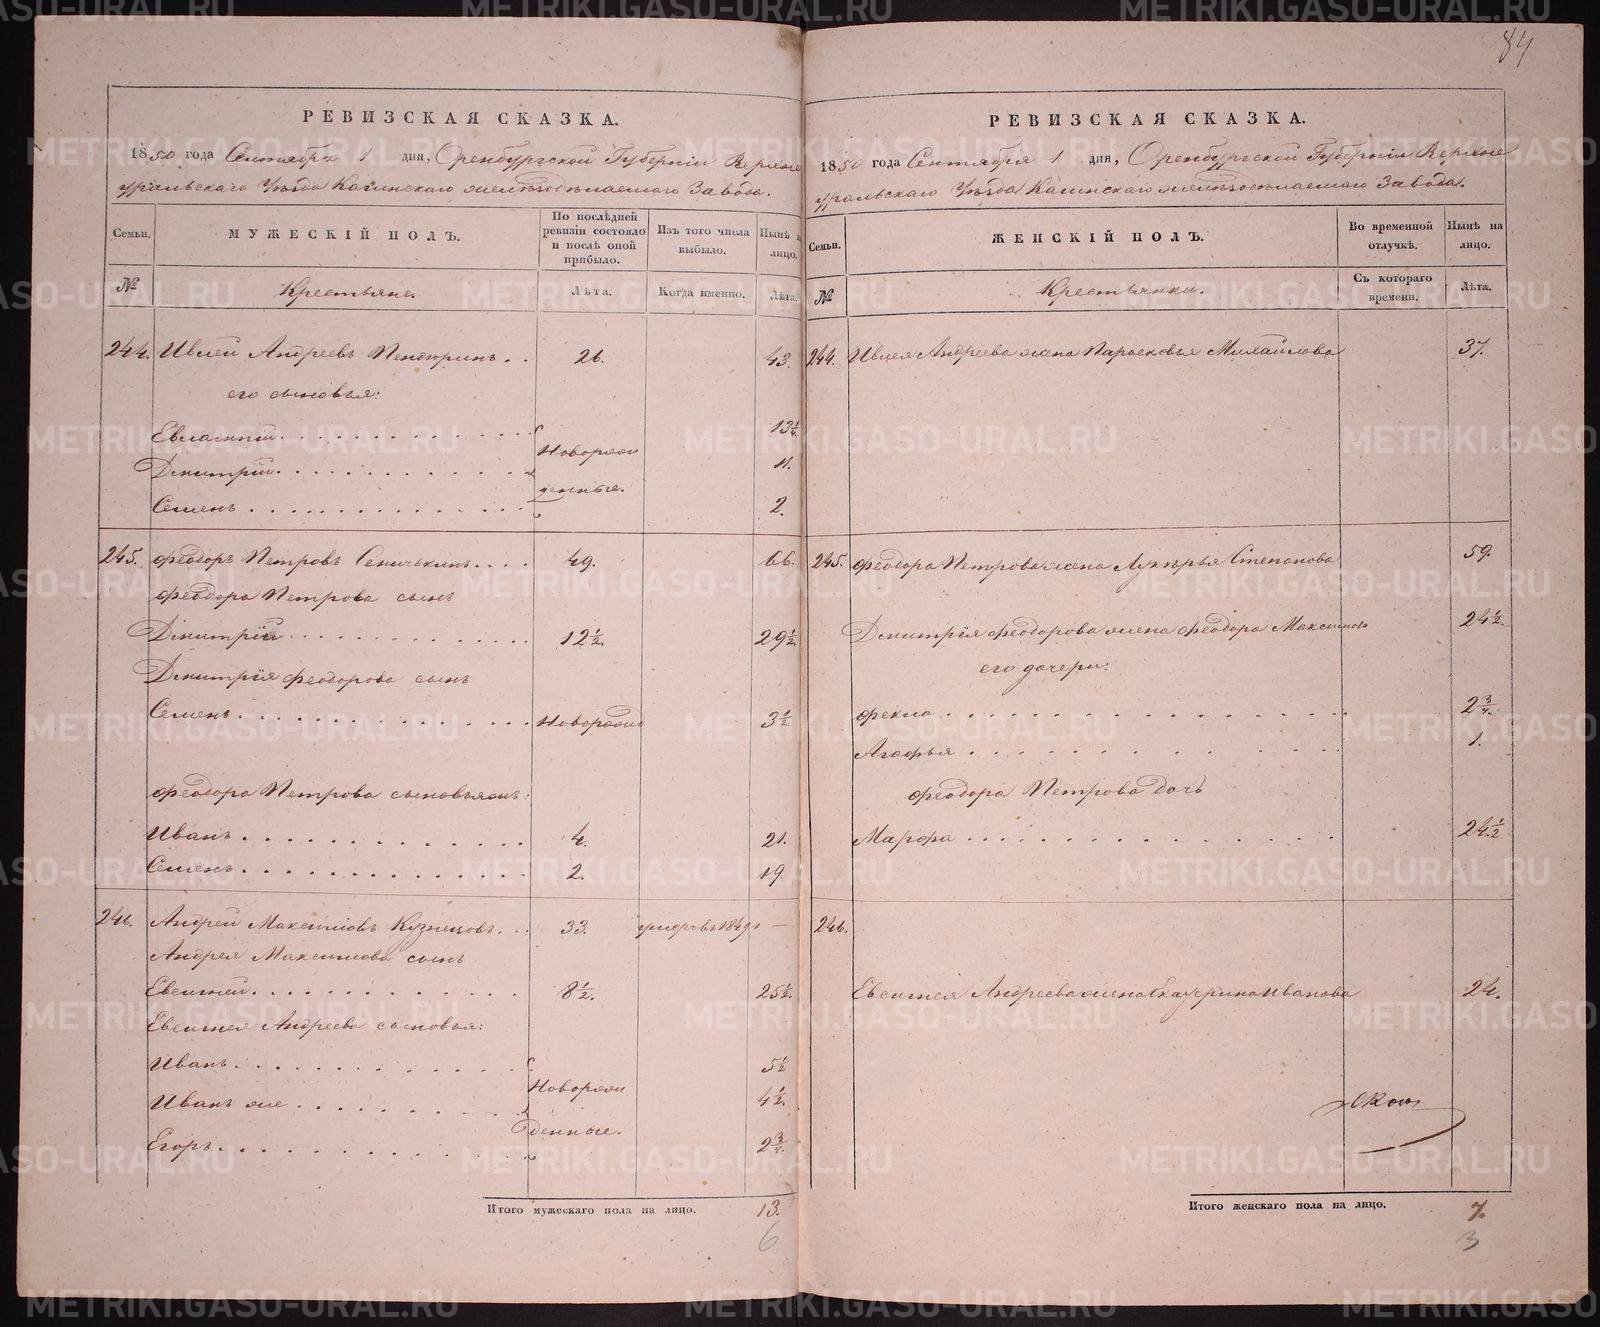 84
РЕВИЗСКАЯ СКАЗКА.
1850 года Сентября 1 дня, Оренбургской Губерніи Верхне
уральскаго Уѣзда Кагинскаго желѣзодѣлаемаго Завода.
Семьи.
МУЖЕСКІЙ ПОЛЪ.
По послѣдней ревизіи состояло и послѣ оной прибыло.
Изъ того числа выбыло.
Нынѣ на лицо.
№
Крестьяне.
Лѣта.
Когда именно.
Лѣта.
244. Ивлей Андреевъ Пендюринъ . . 26. 43.
его сыновья:
Евласпій 13 1/4.
Дмитрій Новорож 11.
Семенъ денные. 2.
245. Феодоръ Петровъ Сеничкинъ 49. 66.
Феодора Петрова сынъ
Дмитрій 12 1/2. 29 1/2.
Дмитрія Феодорова сынъ
Семенъ Новорожд 3 1/2.
Феодора Петрова сыновья:
Иванъ 4. 21.
Семенъ 2. 19.
246. Андрей Максимовъ Кузнецовъ 33. умеръ въ 1849 г —
Андрея Максимова сынъ
Евсигней 8 1/2. 25 1/2.
Евсигнея Андреева сыновья:
Иванъ 5 1/2
Иванъ же Новорож 4 1/2.
Егоръ денные. 2 3/4.
Итого мужескаго пола на лицо. 13.
6
РЕВИЗСКАЯ СКАЗКА.
1850 года Сентября 1 дня, Оренбургской Губерніи Верхне
уральскаго Уѣзда Кагинскаго желѣзодѣлаемаго Завода.
Семьи.
ЖЕНСКІЙ ПОЛЪ.
Во временной отлучкѣ.
Нынѣ на лицо.
№
Крестьянки.
Съ котораго времени.
Лѣта.
244. Ивлея Андреева жена Парасковья Михайлова 37.
245. Феодора Петрова жена Лукерья Степанова 59.
Дмитрія Феодорова жена Феодора Максимова 24 1/2.
его дочери:
Фекла 2 3/4.
Агафья 1.
Феодора Петрова дочь
Марфа 24 1/2
246.
Евсигнея Андреева жена Екатерина Иванова 24.
Итого женскаго пола на лицо. 7.
3
METRIKI.GASO-URAL.RU